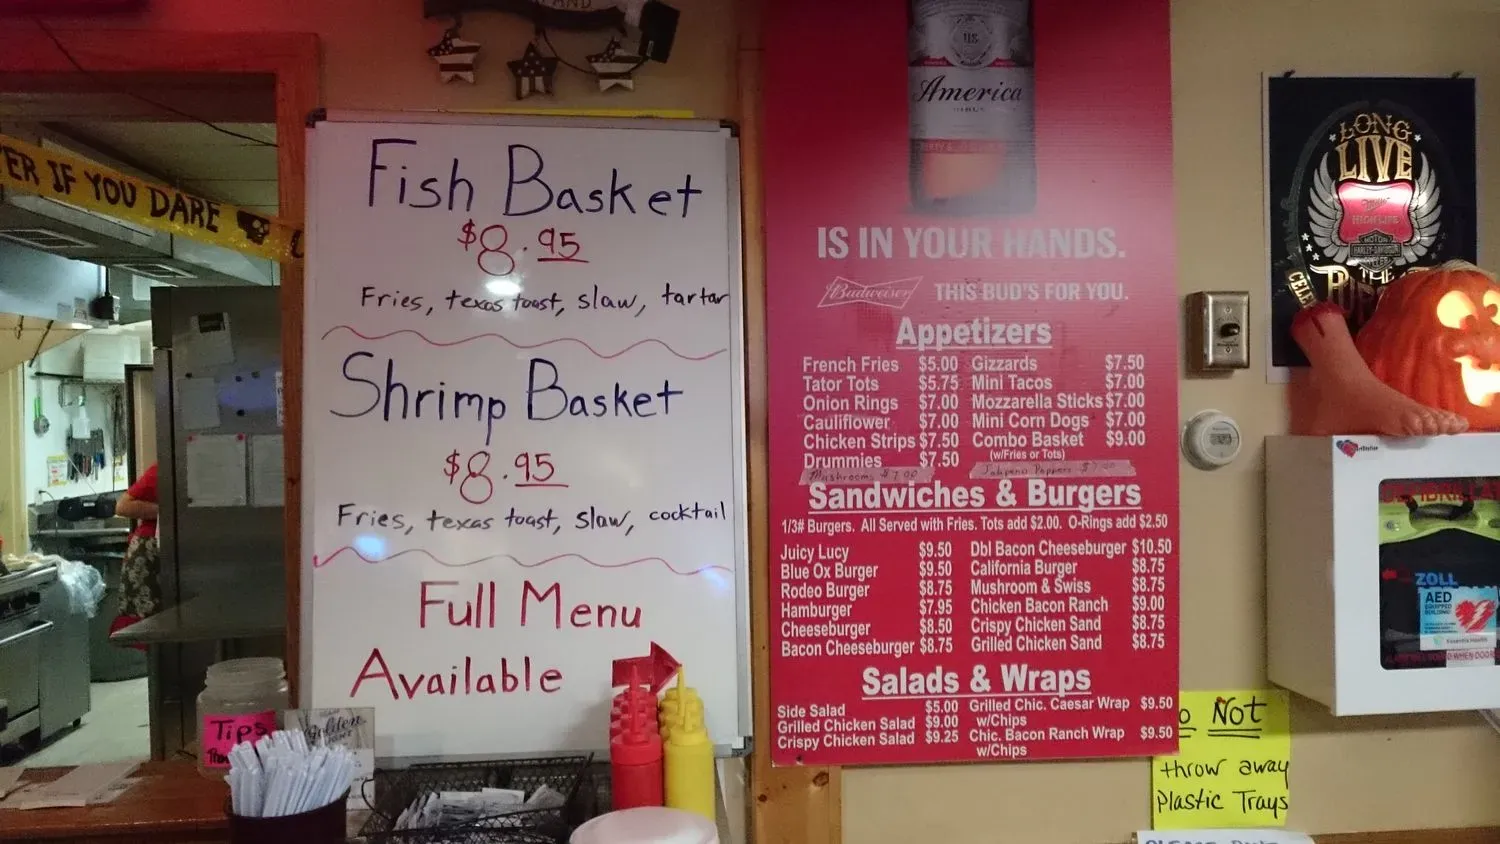 ER IF YOU DARE
Fish Basket
$8.95
Fries, texas toast, slaw, tartar
Shrimp Basket
$8.95
Fries, texas toast, slaw, cocktail
Full Menu
Available
Tips
Golden
America
IS IN YOUR HANDS.
Budweiser THIS BUD'S FOR YOU.
Appetizers
French Fries $5.00 Gizzards $7.50
Tator Tots $5.75 Mini Tacos $7.00
Onion Rings $7.00 Mozzarella Sticks $7.00
Cauliflower $7.00 Mini Corn Dogs $7.00
Chicken Strips $7.50 Combo Basket $9.00
(w/Fries or Tots)
Drummies $7.50
Mushrooms $7.00 Jalapeno Poppers $7.00
Sandwiches & Burgers
1/3# Burgers. All Served with Fries. Tots add $2.00. O-Rings add $2.50
Juicy Lucy $9.50 Dbl Bacon Cheeseburger $10.50
Blue Ox Burger $9.50 California Burger $8.75
Rodeo Burger $8.75 Mushroom & Swiss $8.75
Hamburger $7.95 Chicken Bacon Ranch $9.00
Cheeseburger $8.50 Crispy Chicken Sand $8.75
Bacon Cheeseburger $8.75 Grilled Chicken Sand $8.75
Salads & Wraps
Side Salad $5.00 Grilled Chic. Caesar Wrap $9.50
w/Chips
Grilled Chicken Salad $9.00
Crispy Chicken Salad $9.25 Chic. Bacon Ranch Wrap $9.50
w/Chips
LONG
LIVE
HIGH LIFE
MOTOR
HARLEY-DAVIDSON
CYCLES
THE
ZOLL
AED
o Not
throw away
Plastic Trays